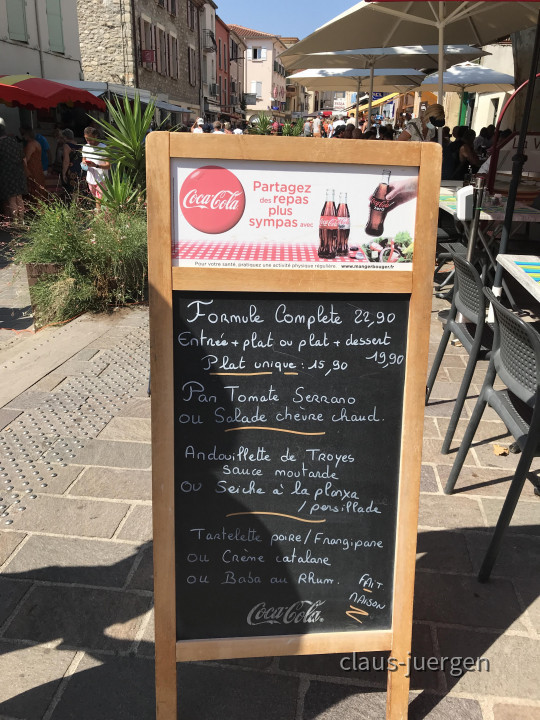 Coca-Cola
Partagez
des repas
plus
sympas avec
Pour votre santé, pratiquez une activité physique régulière. www.mangerbouger.fr
Formule Complete 22,90
Entrée + plat ou plat + dessert
19,90
Plat unique : 15,90
Pan Tomate Serrano
ou Salade chèvre chaud.
Andouillette de Troyes
sauce moutarde
ou Seiche à la planxa
/ persillade
Tartelette poire / Frangipane
ou Crème catalane
ou Baba au Rhum.
FAIT
MAISON
Coca-Cola
claus-juergen